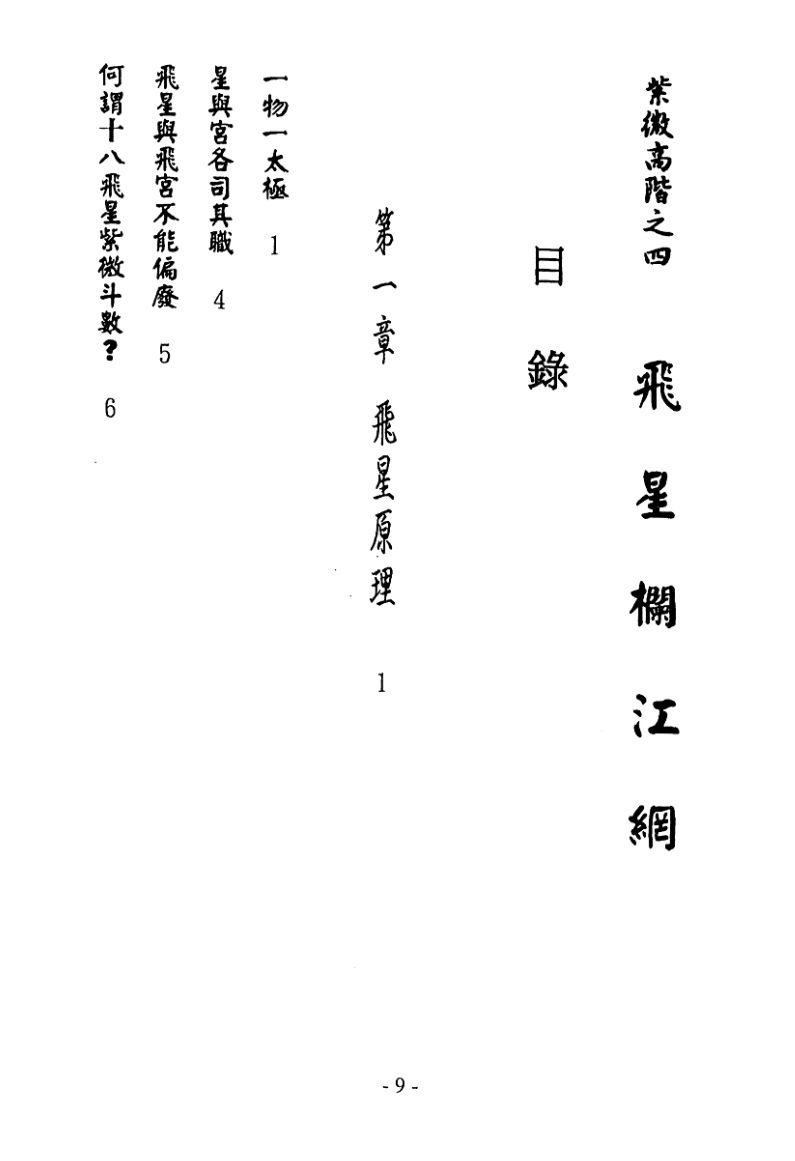 紫微高階之四 飛星欄江網
目錄
第一章 飛星原理 1
一物一太極 1
星與宮各司其職 4
飛星與飛宮不能偏廢 5
何謂十八飛星紫微斗數？ 6
- 9 -